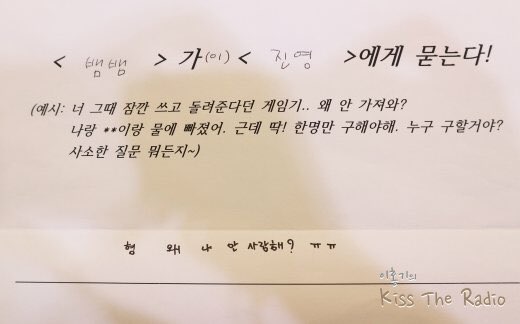 < 뱀뱀 > 가(이) < 진영 >에게 묻는다!
(예시: 너 그때 잠깐 쓰고 돌려준다던 게임기.. 왜 안 가져와?
나랑 **이랑 물에 빠졌어. 근데 딱! 한명만 구해야해. 누구 구할거야?
사소한 질문 뭐든지~)
형 왜 나 안 사랑해? ㅠㅠ
이홍기의
Kiss The Radio